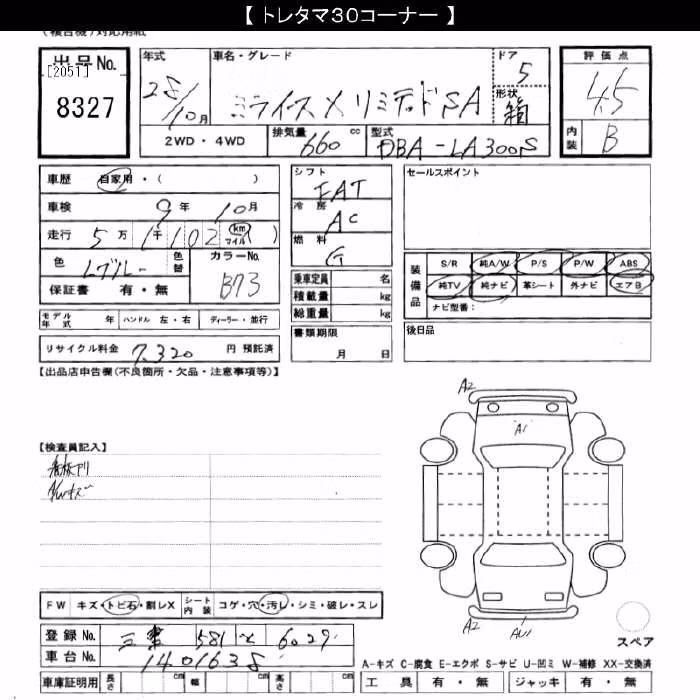 【 トレタマ30コーナー 】
(複合機)対応用紙
出品No.
[2051]
8327
年式
28/10月
車名・グレード
ミライース X リミテッド SA
ドア
5
形状
箱
評価点
4.5
内装
B
2WD・4WD
排気量
660 cc
型式
DBA-LA300S
車歴 自家用・( )
車検 9年 10月
走行 5万 1千 102 km マイル )
色 Lブルー 色替
カラーNo.
B73
保証書 有・無
シフト
FAT
冷房
AC
燃料
G
乗車定員 名
積載量 kg
総重量 kg
書類期限
月 日
セールスポイント
装備品
S/R 純A/W P/S P/W ABS
純TV 純ナビ 革シート 外ナビ エアB
ナビ型番:
後日品
モデル年式 年 ハンドル 左・右 ディーラー・並行
リサイクル料金 7,320 円 預託済
【出品店申告欄(不良箇所・欠品・注意事項等)】
【検査員記入】
A2
A1
A2
F W キズ・トビ石・割レX シート内装 コゲ・穴・汚レ・シミ・破レ・スレ
登録 No. 三重 581 と 6029
車台 No. 1401638
車庫証明用 長さ cm 幅 cm 高さ cm
スペア
A-キズ C-腐食 E-エクボ S-サビ U-凹ミ W-補修 XX-交換済
工具 有・無 ジャッキ 有・無